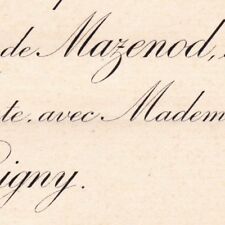 de Mazenod,
te, avec Madem
igny.